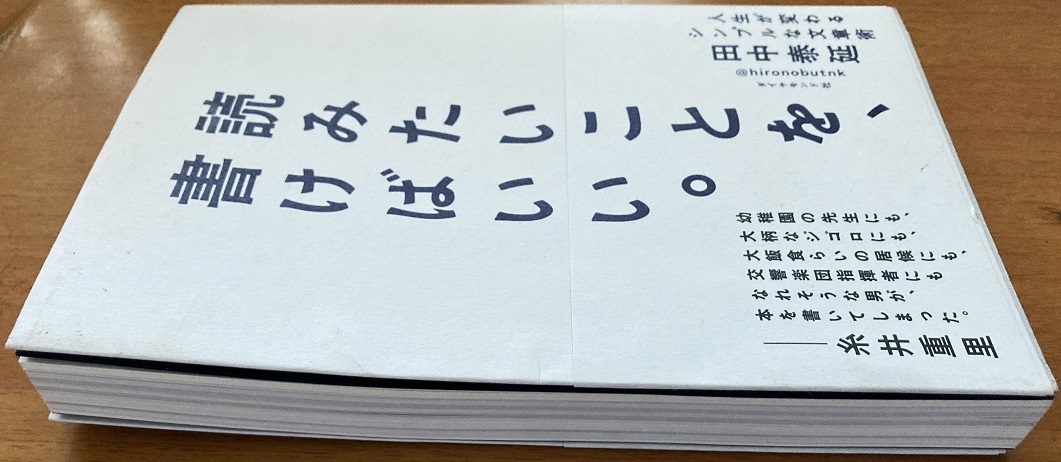 人生が変わる
シンプルな文章術
田中泰延
@hironobutnk
ダイヤモンド社
読みたいことを、
書けばいい。
幼稚園の先生にも、
大柄なジゴロにも、
大飯食らいの居候にも、
交響楽団指揮者にも
なれそうな男が、
本を書いてしまった。
──糸井重里